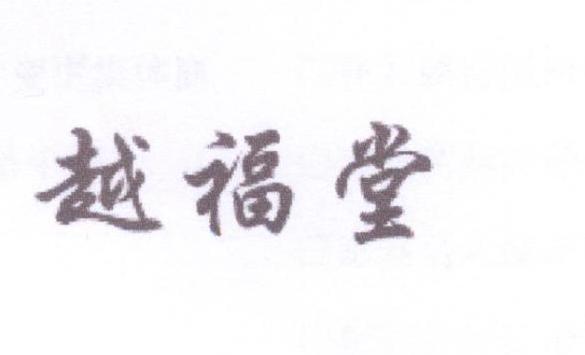 越福堂